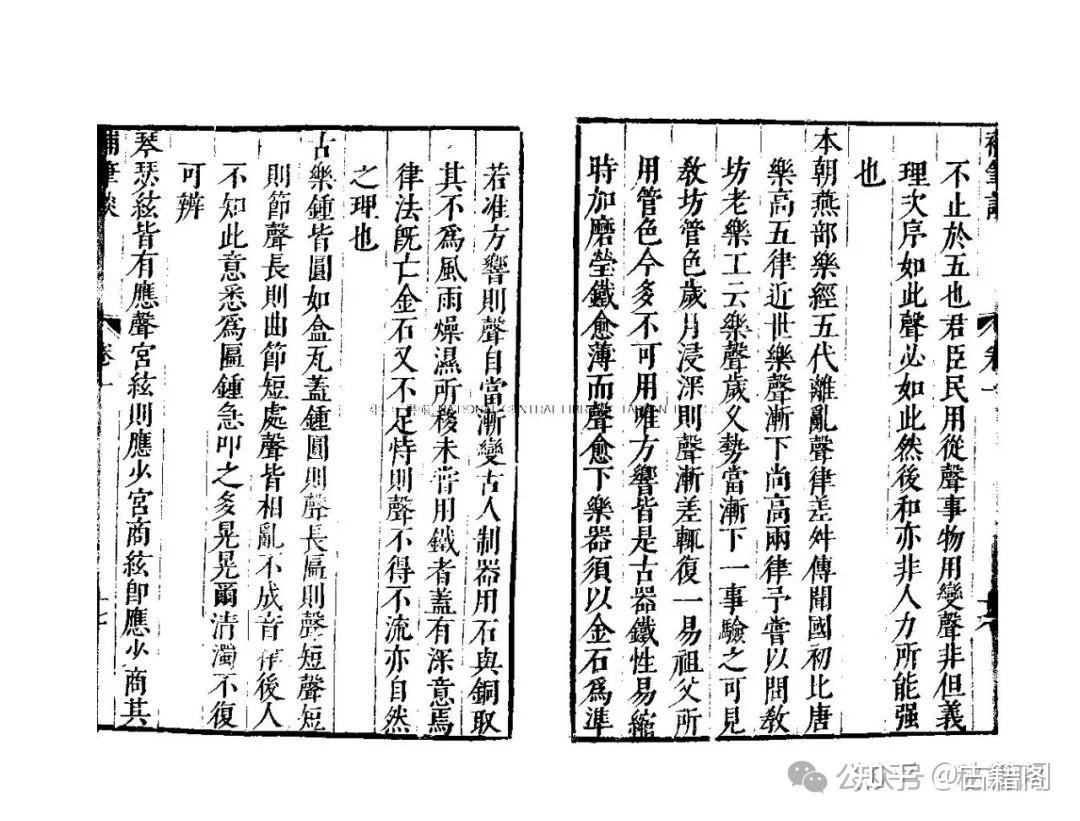 補筆談
卷一
不止於五也君臣民用從聲事物用變聲非但義
理次序如此聲必如此然後和亦非人力所能强
也
本朝燕部樂經五代離亂聲律差舛傳聞國初比唐
樂高五律近世樂聲漸下尚高兩律予嘗以問教
坊老樂工云樂聲歲久勢當漸下一事驗之可見
教坊管色歲月浸深則聲漸差輒復一易祖父所
用管色今多不可用唯方響皆是古器鐵性易縮
時加磨瑩鐵愈薄而聲愈下樂器須以金石爲準
若准方響則聲自當漸變古人制器用石與銅取
其不爲風雨燥濕所移未嘗用鐵者蓋有深意焉
律法旣亡金石又不足恃則聲不得不流亦自然
之理也
古樂鍾皆圓如盒瓦蓋鍾圓則聲長匾則聲短聲短
則節聲長則曲節短處聲皆相亂不成音律後人
不知此意悉爲匾鍾急叩之多晃晃爾清濁不復
可辨
琴瑟絃皆有應聲宮絃則應少宮商絃卽應少商其
補筆談
卷一
十七
NATIONAL CENTRAL LIBRARY
知乎 @秸籍阁